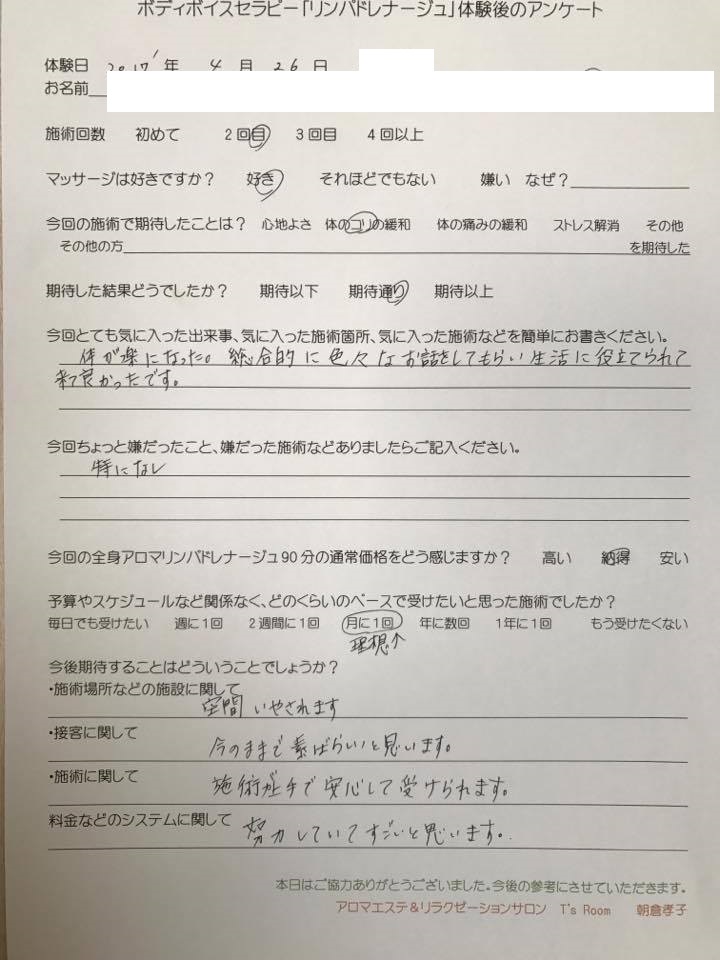 ボディボイスセラピー「リンパドレナージュ」体験後のアンケート
体験日 2017'年 4月 26日
お名前
施術回数 初めて 2回目 3回目 4回以上
マッサージは好きですか? 好き それほどでもない 嫌い なぜ?
今回の施術で期待したことは? 心地よさ 体のコリの緩和 体の痛みの緩和 ストレス解消 その他
その他の方 を期待した
期待した結果どうでしたか? 期待以下 期待通り 期待以上
今回とても気に入った出来事、気に入った施術箇所、気に入った施術などを簡単にお書きください。
体が楽になった。総合的に色々なお話をしてもらい生活に役立てられて
来て良かったです。
今回ちょっと嫌だったこと、嫌だった施術などありましたらご記入ください。
特になし
今回の全身アロマリンパドレナージュ90分の通常価格をどう感じますか? 高い 納得 安い
予算やスケジュールなど関係なく、どのくらいのペースで受けたいと思った施術でしたか?
毎日でも受けたい 週に1回 2週間に1回 月に1回 年に数回 1年に1回 もう受けたくない
理想↑
今後期待することはどういうことでしょうか?
・施術場所などの施設に関して
空間いやされます
・接客に関して
今のままで素ばらいと思います。
・施術に関して
施術が上手で安心して受けられます。
料金などのシステムに関して 努力していてすごいと思います。
本日はご協力ありがとうございました。今後の参考にさせていただきます。
アロマエステ&リラクゼーションサロン T's Room 朝倉孝子